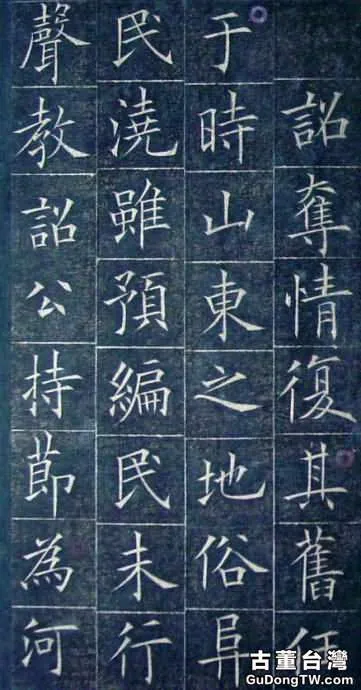 詔奪情復其舊任
于時山東之地俗阜
民澆雖預編民未行
聲教詔公持節為河
古董台灣
GuDongTW.com